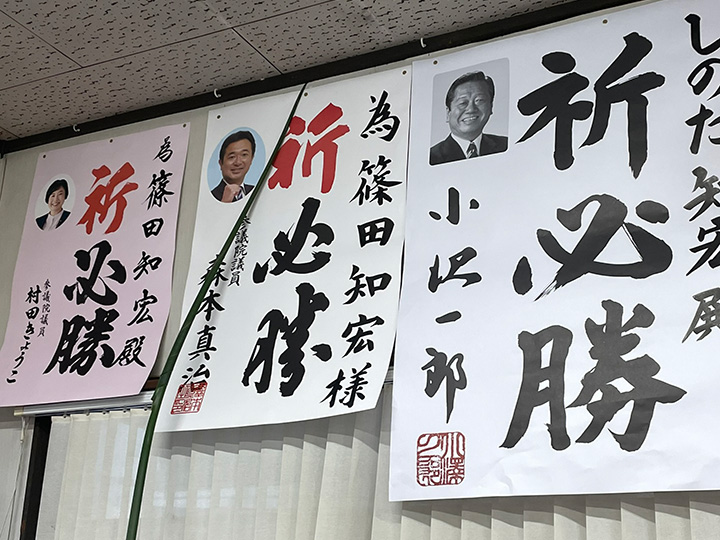 為篠田知宏殿
祈必勝
参議院議員
村田きょうこ
為篠田知宏様
祈必勝
参議院議員
森本真治
しのだ知宏殿
祈必勝
小沢一郎